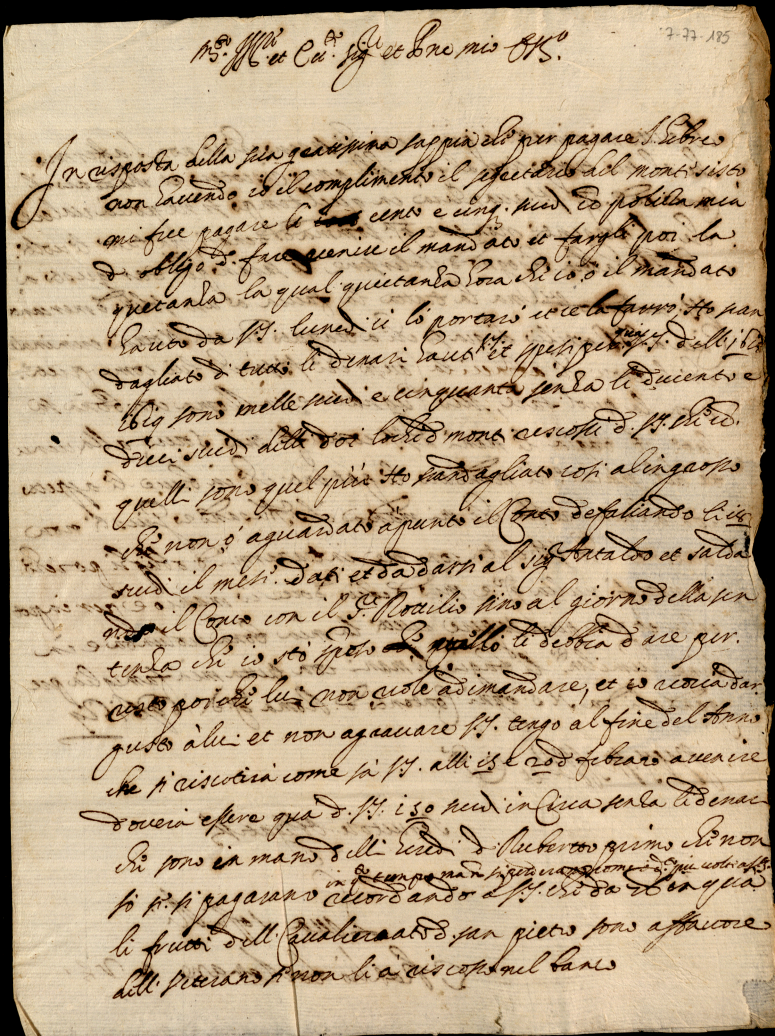 7-77-185
et sig.r et mio
In risposta della sua gratissima sappia che per pagare
non havendo io il complimento il secretario del monti sisto
mi fece pagare li cento e cinq. scudi polizza mia
d obligo d. fare venire il mandato et fargli poi la
quietanza la qual quietanza hora che io ò il mandato
hauto da V.S. lunedi li lo portarò et ce la farrò. Ho scan
dagliato di tutti li denari hauti et spesi per V.S. delli
1619 sono mille scudi e cinquanta senza li ducento e
dieci scudi delli doi lochi d monti riscossi d V.S. che
quelli sono quel più Ho scandagliato cosi alingrosso
che non ò aguardato apunto il Conto defalcando li 18
scudi il mese. Dati et da darsi al sig.r Antaldo et salda
il Conto con il S.r sino al giorno della sen
tenza che io stò quello li debbia dare per
resto poi che lui non vole adimandare, et io voria dar
gusto à lui et non agravare V.S. tengo al fine del Anno
che si riscotirà come sà V.S. alli 15 e 20 d febraro avenire
doverà essere qua d. V.S. 150 scudi in Circa senza li denari
che sono in mano delli heredi d. Ruberto primo che non
in q.o tempo
sò se si pagarano ricordando a V.S. che da in qua
li frutti dell Cavalierato d. san pietro sono affavore
delli se non li à riscossi nel banco